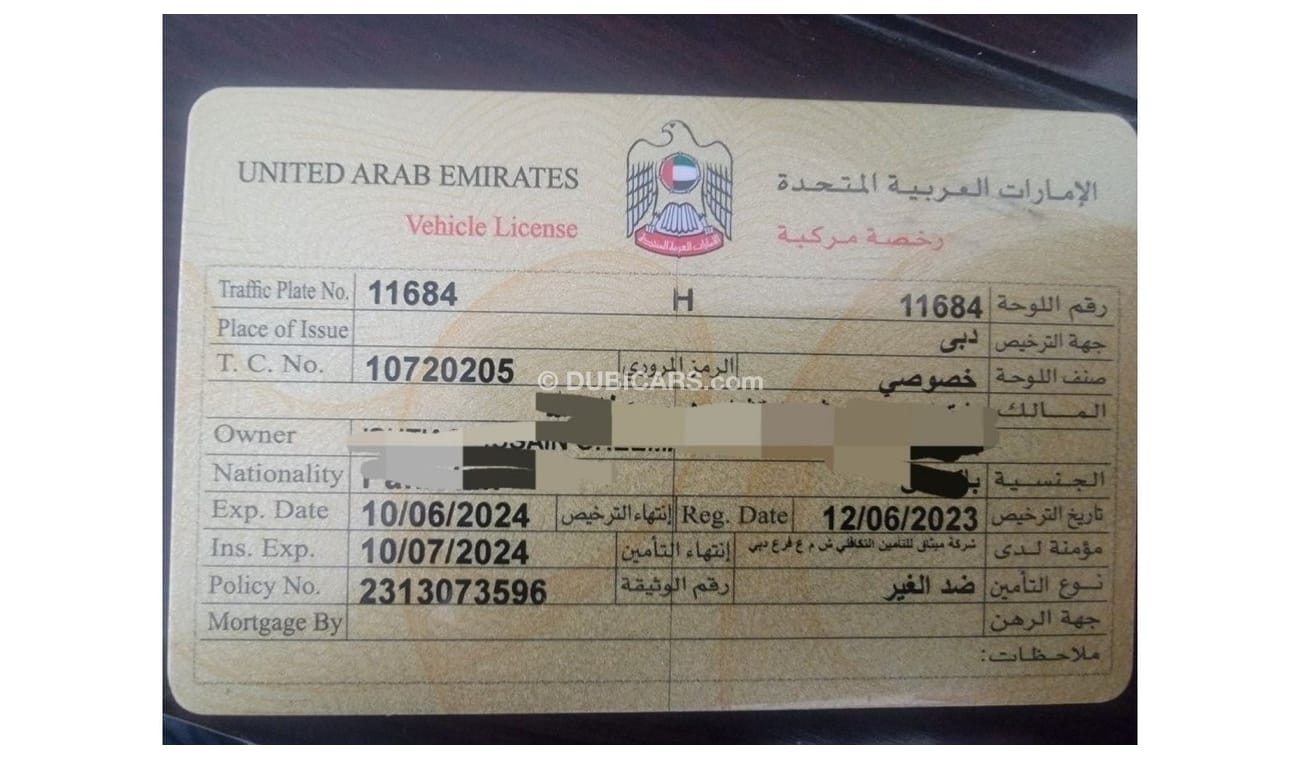 UNITED ARAB EMIRATES الإمارات العربية المتحدة
Vehicle License رخصة مركبة
Traffic Plate No. 11684 H 11684 رقم اللوحة
Place of Issue دبي جهة الترخيص
T. C. No. 10720205 الرمز المروري خصوصي صنف اللوحة
© DUBICARS.com
المالك
Owner
Nationality الجنسية
Exp. Date 10/06/2024 إنتهاء الترخيص Reg. Date 12/06/2023 تاريخ الترخيص
Ins. Exp. 10/07/2024 إنتهاء التأمين شركة ميثاق للتأمين التكافلي ش م ع فرع دبي مؤمنة لدى
Policy No. 2313073596 رقم الوثيقة ضد الغير نوع التأمين
Mortgage By جهة الرهن
ملاحظات: